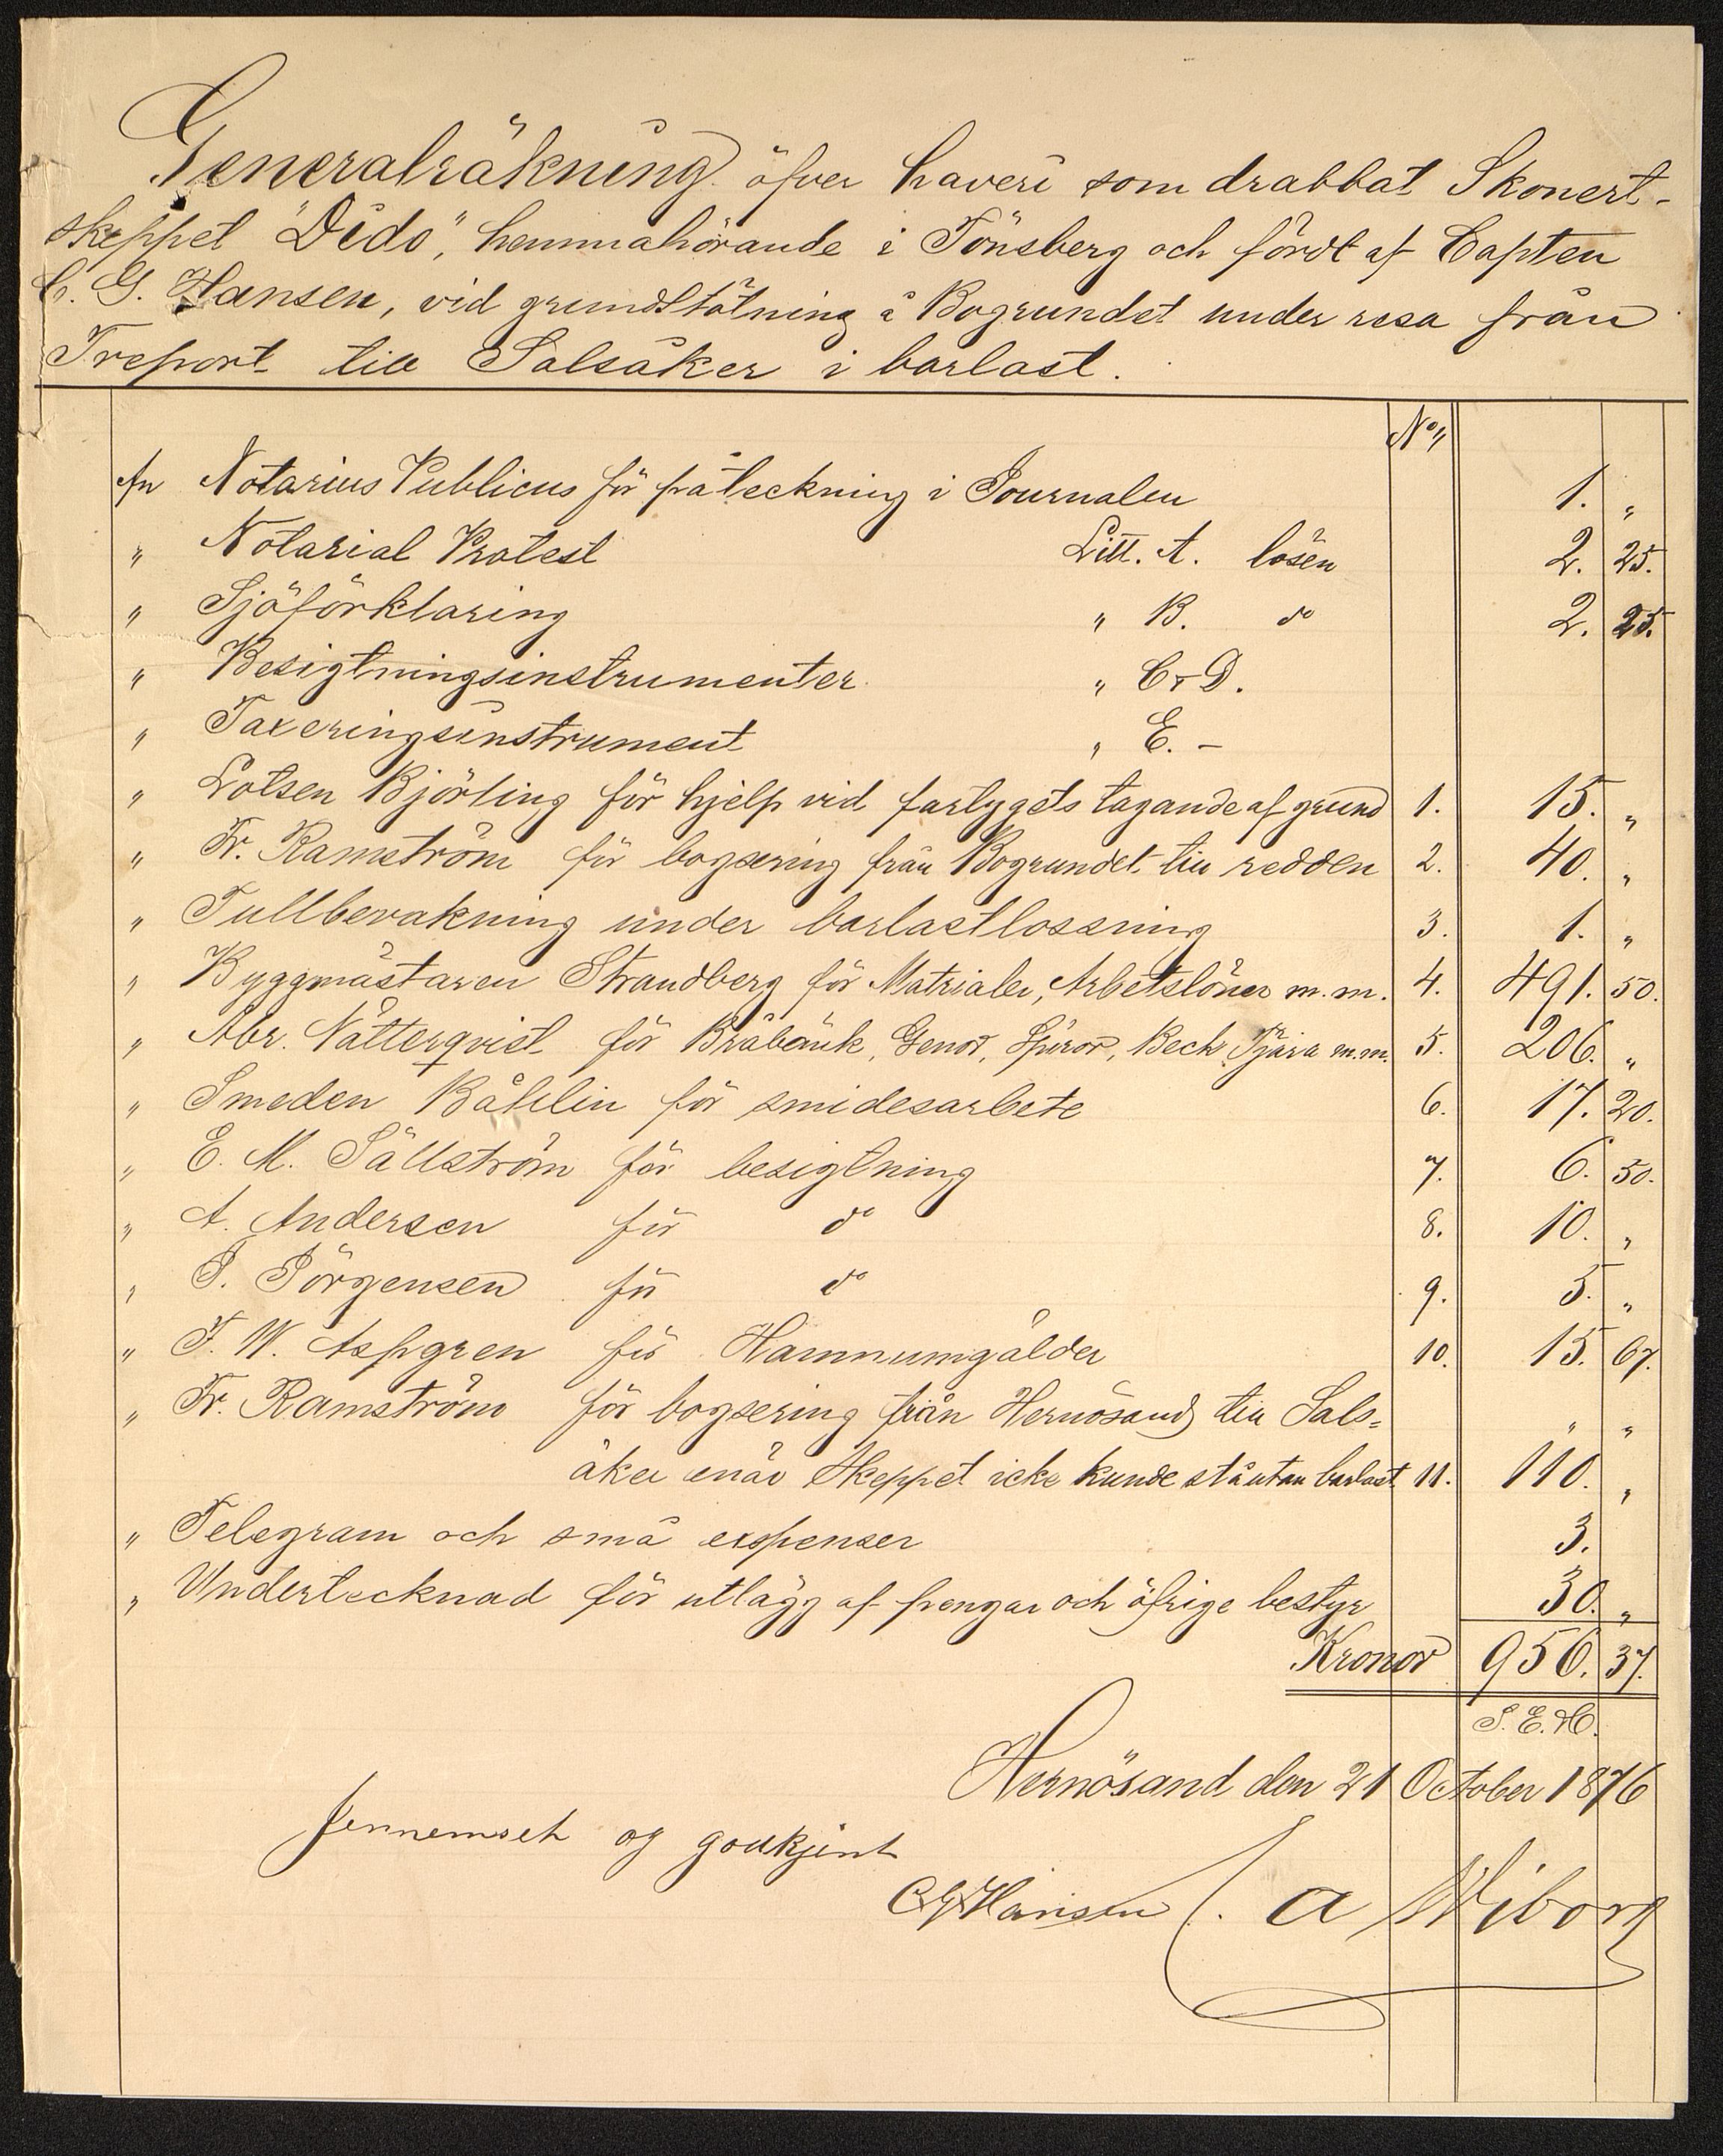 Generalräkning öfver haveri som drabbat Skonert-
skeppet "Dido", hemmahörande i Tönsberg och fördt af Capten
C. G. Hansen, vid grundstötning å Bogrundet under resa från
Treport till Salsåker i barlast.
No,,
An Notarius Publicus för påteckning i Journalen 1. "
" Notarial Protest Litt. A. lösen 2. 25.
" Sjöförklaring " B. do 2. 25.
" Besigtningsinstrumenter " C & D.
" Taxeringsinstrument " E. -
" Lotsen Björling för hjelp vid fartygets tagande af grund 1. 15. "
" Fr. Ramström för bogsering från Bogrundet till redden 2. 40. "
" Tullbevakning under barlastlossning 3. 1. "
" Byggmästaren Strandberg för Matrialer, Arbetslöner m.m. 4. 491. 50.
" Abr. Nätterqvist för Bräbänk, Genor, Spiror, Beck, Tjära m.m. 5. 206. "
" Smeden Båhlin för smidesarbete 6. 17. 20.
" E. M. Sällström för besigtning 7. 6. 50.
" A. Andersen för do 8. 10. "
" P. Jörgensen för do 9. 5. "
" F. W. Aspgren för Hamnumgälder 10. 15. 67.
" Fr. Ramström för bogsering från Hernösand till Sals= " "
åker enär Skeppet icke kunde stå utan barlast 11. 110. "
" Telegram och små expenser 3.
" Undertecknad för utlägg af pengar och öfrige bestyr 30. "
Kronor 956. 37.
S. E. &O.
Hernösand den 21 October 1876
Jennemseet og godkjent
CGHansen C. A Wiborg